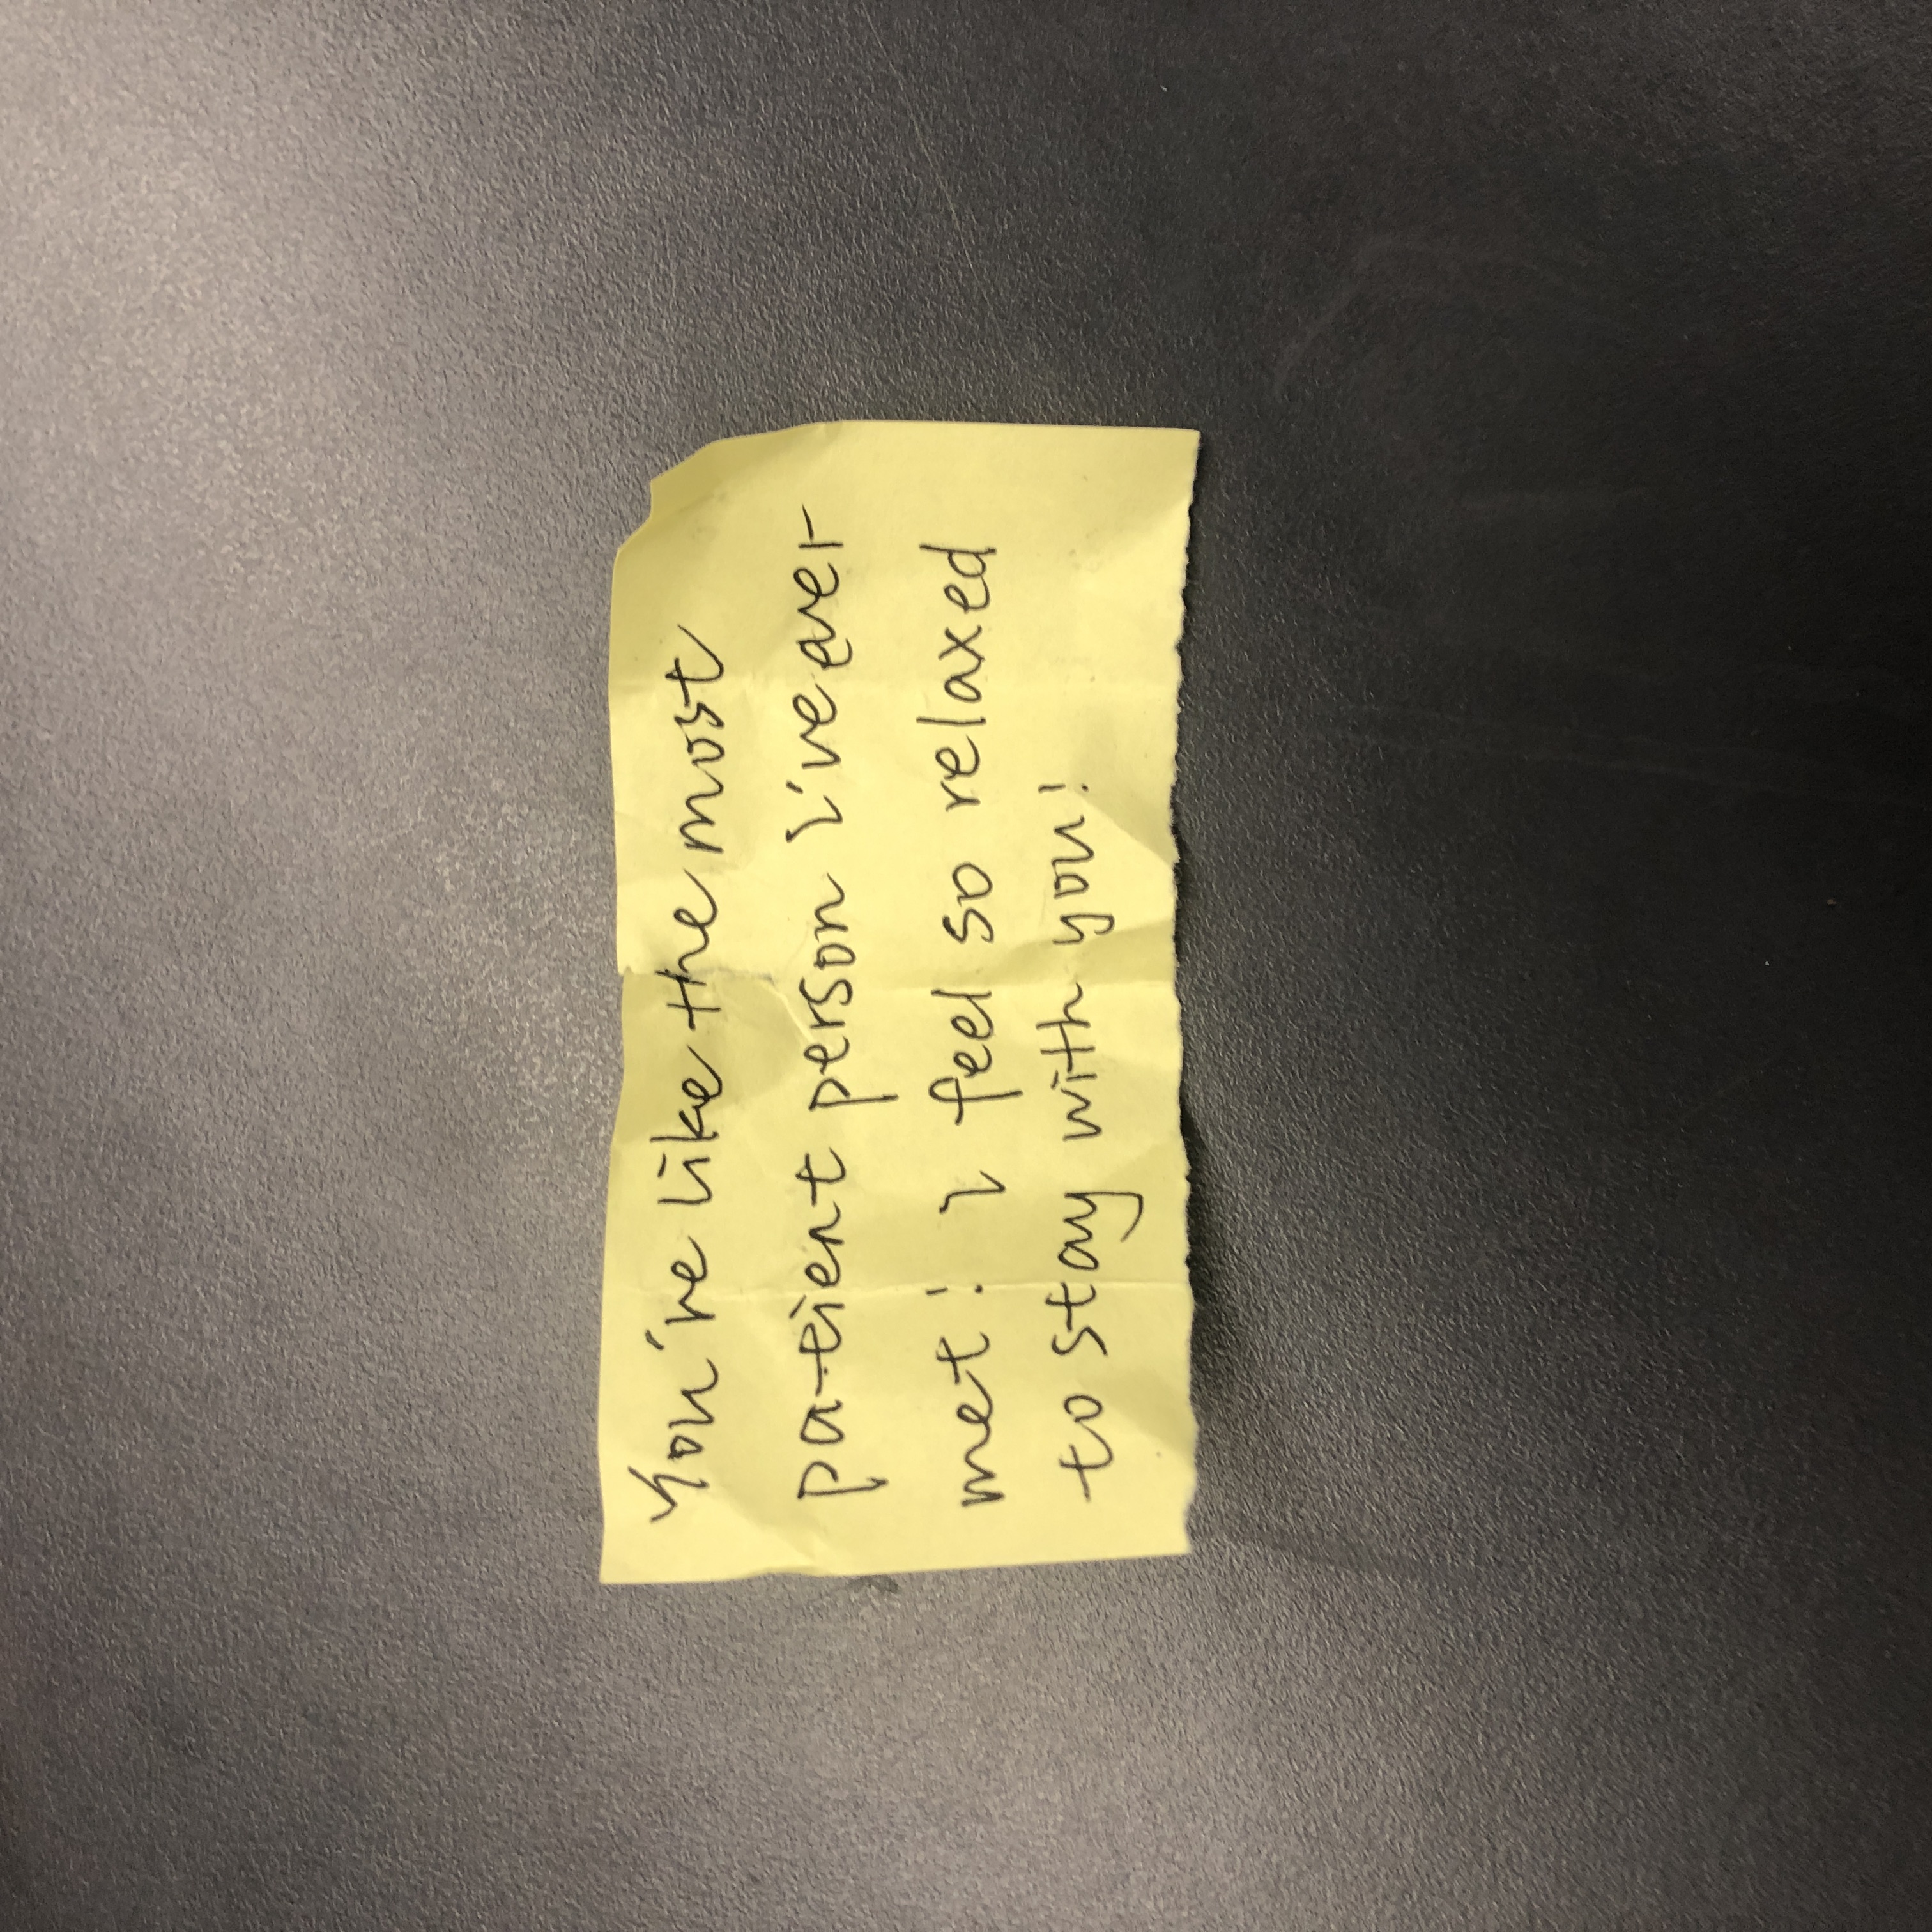 You're like the most
patient person I've ever
met! I feel so relaxed
to stay with you!